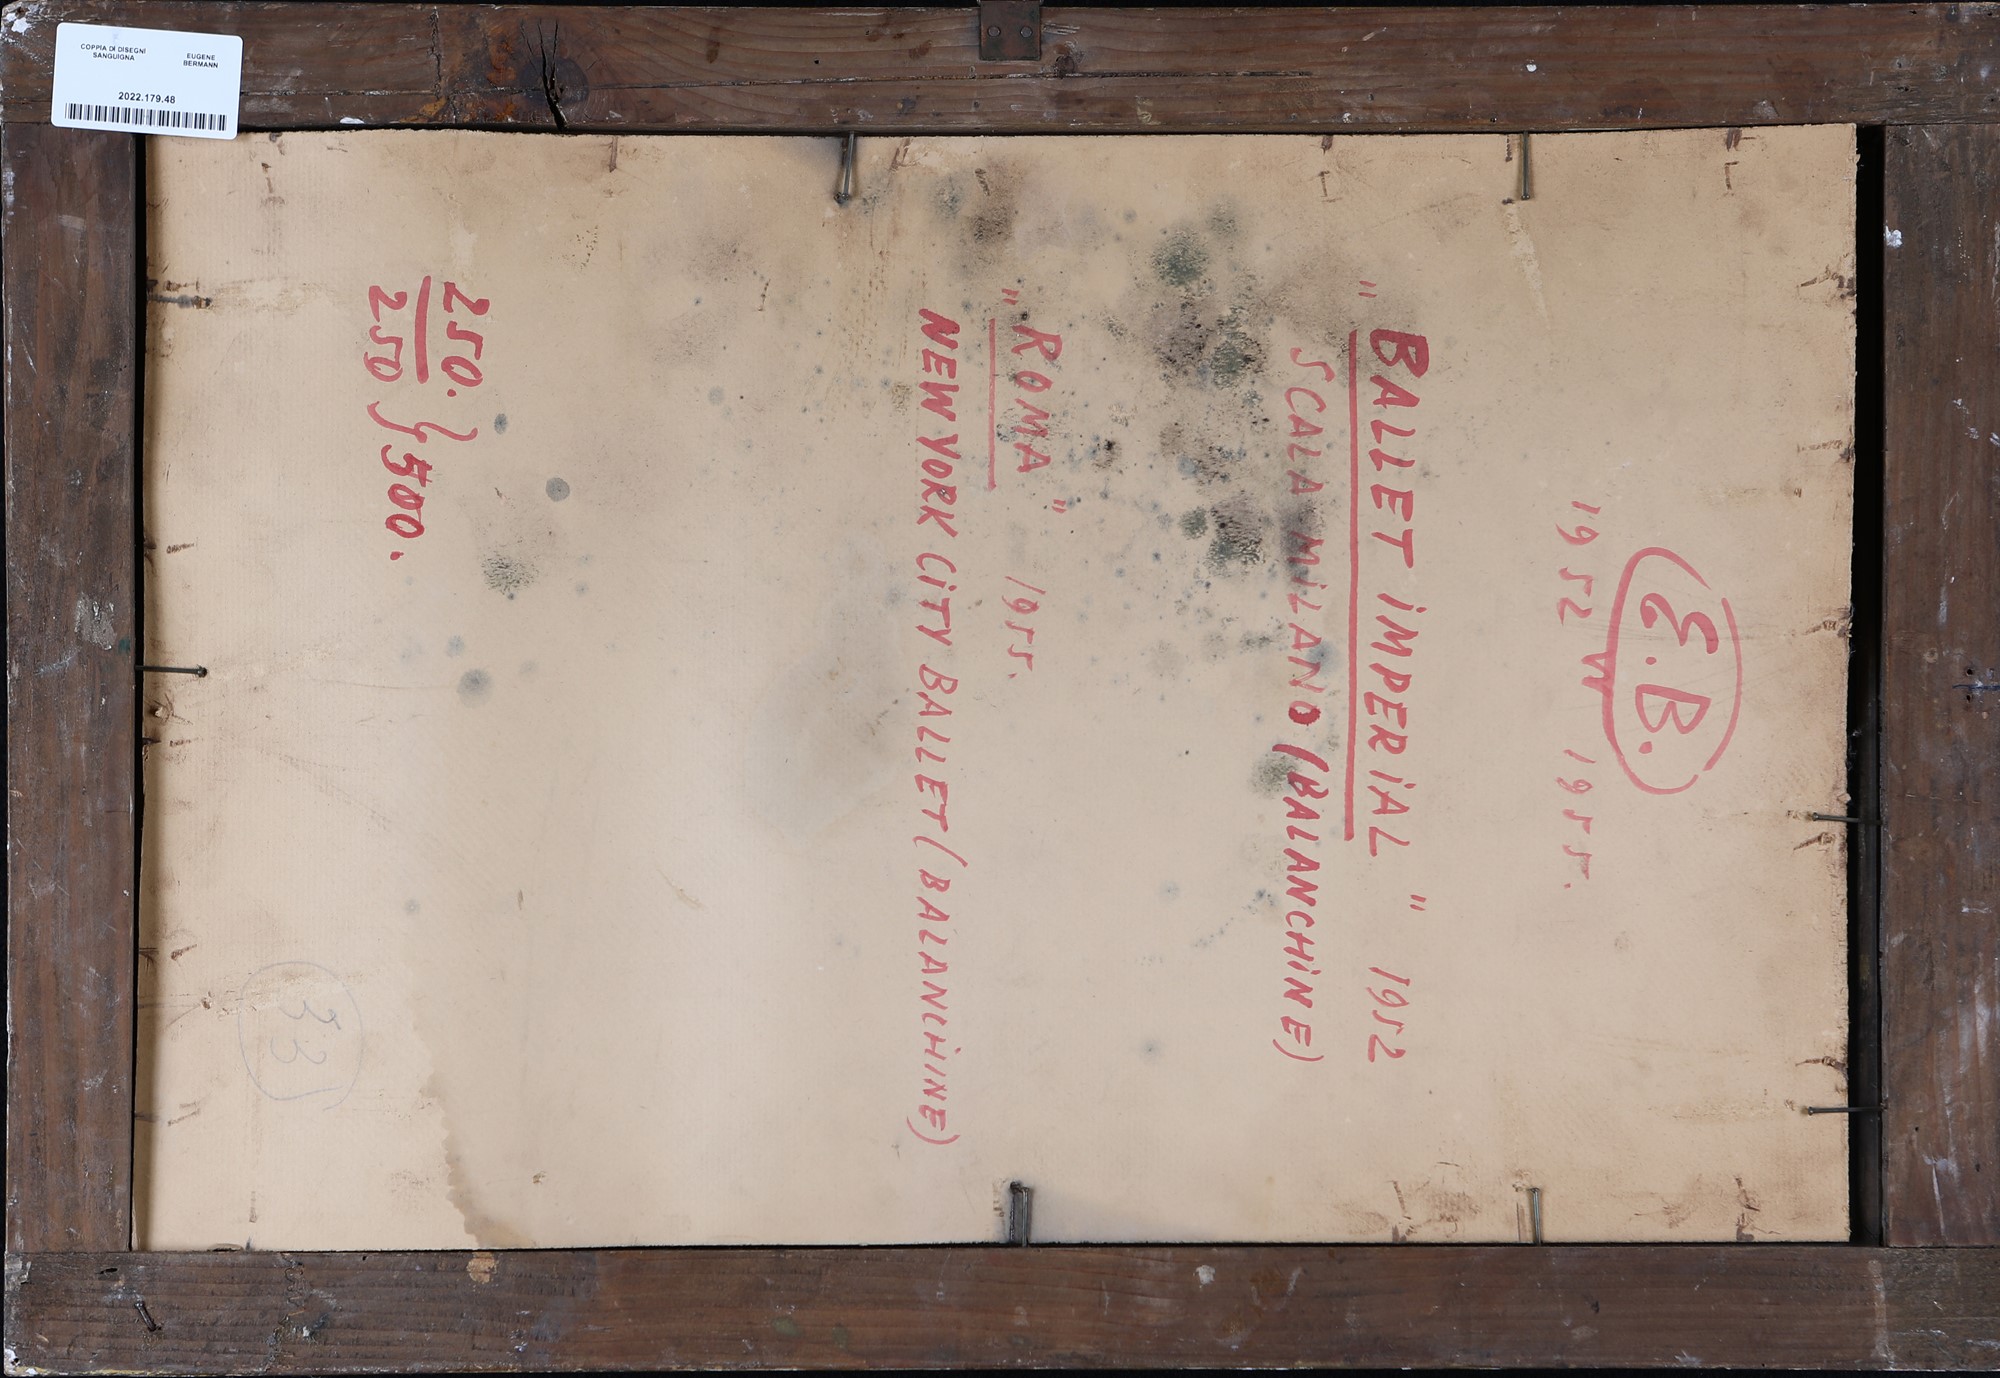 COPPIA DI DISEGNI
SANGUIGNA
EUGENE
BERMANN
2022.179.48
E.B.
1952 1955.
"BALLET iMPERiAL" 1952
SCALA MiLANO (BALANCHiNE)
"ROMA" 1955.
NEW YORK CiTY BALLET (BALANCHiNE)
250.
250 } 500.
33